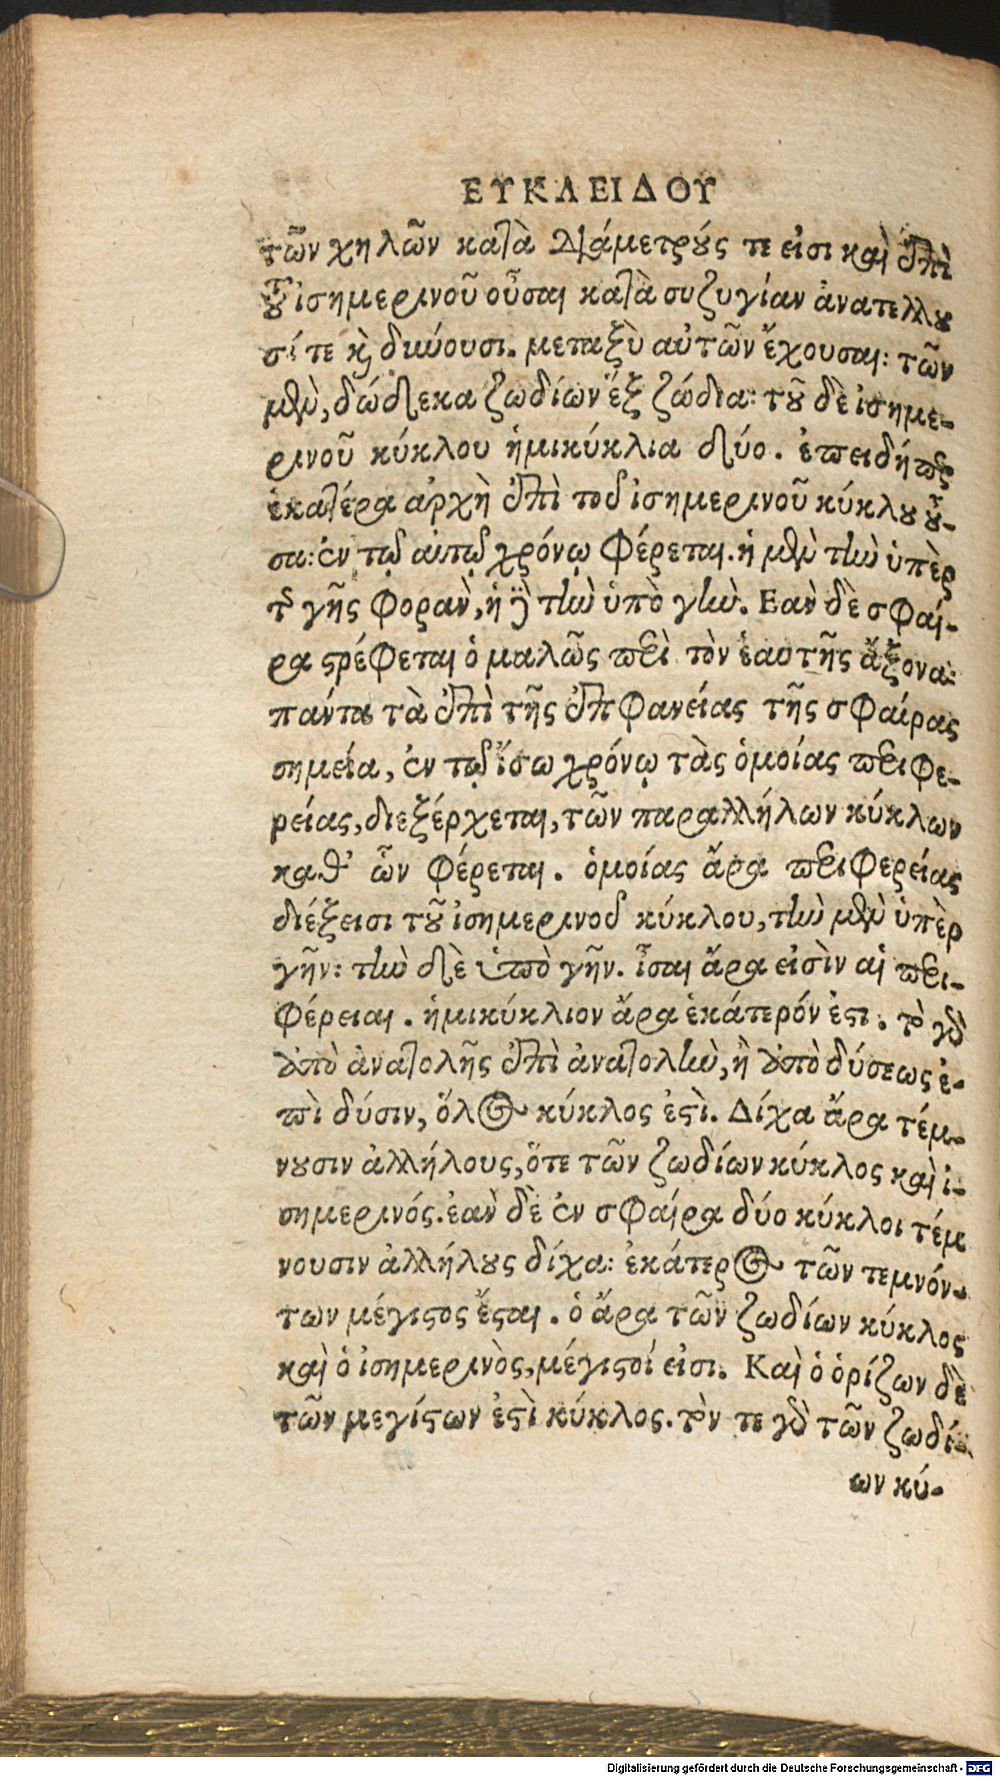 ΕΥΚΛΕΙΔΟΥ
τῶν χηλῶν κατὰ διάμετρούς τε εἰσι καὶ ἐπὶ
τοῦ ἰσημερινοῦ οὖσαι κατὰ συζυγίαν ἀνατέλλου
σί τε καὶ δύνουσι. μεταξὺ αὐτῶν ἔχουσαι: τῶν
μὲν, δώδεκα ζωδίων ἓξ ζώδια: τοῦ δὲ ἰσημε-
ρινοῦ κύκλου ἡμικύκλια δύο. ἐπειδήπερ
ἑκατέρα ἀρχὴ ἐπὶ τοῦ ἰσημερινοῦ κύκλου οὖ-
σα: ἐν τῷ αὐτῷ χρόνῳ φέρεται. ἡ μὲν τὴν ὑπὲρ
τῆς γῆς φορὰν, ἡ δὲ τὴν ὑπὸ γὴν. Εαν δὲ σφαί-
ρα στρέφεται ὁμαλῶς περὶ τὸν ἑαυτῆς ἄξονα:
πάντα τὰ ἐπὶ τῆς ἐπιφανείας τῆς σφαίρας
σημεία, ἐν τῷ ἴσω χρόνῳ τὰς ὁμοίας περιφε-
ρείας, διεξέρχεται, τῶν παραλλήλων κύκλων
καθ᾽ ὧν φέρεται. ὁμοίας ἄρα περιφερείας
διέξεισι τοῦ ἰσημερινοῦ κύκλου, τὴν μὲν ὑπὲρ
γῆν: τὴν δὲ ὑπὸ γῆν. ἶσαι ἄρα εἰσὶν αἱ περι-
φέρειαι. ἡμικύκλιον ἄρα ἑκάτερόν ἐστι. τὸ γὰρ
ἀπὸ ἀνατολῆς ἐπὶ ἀνατολὴν, ἢ ἀπὸ δύσεως ἐ-
πὶ δύσιν, ὅλος κύκλος ἐστὶ. Δίχα ἄρα τέμ-
νουσιν ἀλλήλους, ὅτε τῶν ζωδίων κύκλος καὶ ἰ-
σημερινός. ἐὰν δὲ ἐν σφαίρα δύο κύκλοι τέμ
νουσιν ἀλλήλους δίχα: ἑκάτερος τῶν τεμνόν-
των μέγιστος ἔσται. ὁ ἄρα τῶν ζωδίων κύκλος
καὶ ὁ ἰσημερινὸς, μέγιστοί εἰσι. Καὶ ὁ ὁρίζων δὲ
τῶν μεγίστων ἐστὶ κύκλος. τὸν τε γὰρ τῶν ζωδί-
ων κύ-
Digitalisierung gefördert durch die Deutsche Forschungsgemeinschaft - DFG